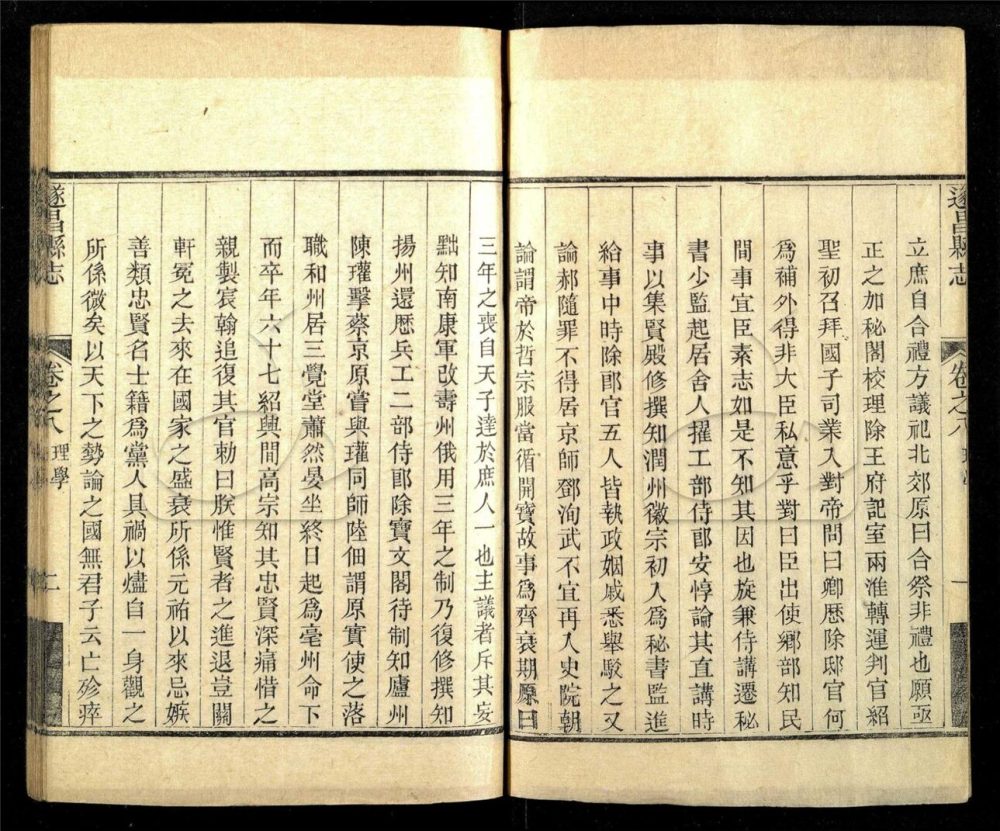 遂昌縣志
卷之八
理學
一
立庶自合禮方議祀北郊原曰合祭非禮也願亟
正之加秘閣校理除王府記室兩淮轉運判官紹
聖初召拜國子司業入對帝問曰卿歷除邸官何
為補外得非大臣私意乎對曰臣出使鄉部知民
間事宜臣素志如是不知其因也旋兼侍講遷秘
書少監起居舍人擢工部侍郎安惇論其直講時
事以集賢殿修撰知潤州徽宗初入為秘書監進
給事中時除郎官五人皆執政姻戚悉舉駁之又
論郝隨罪不得居京師鄧洵武不宜再入史院朝
論謂帝於哲宗服當循開寶故事為齊衰期原曰
三年之喪自天子達於庶人一也主議者斥其妄
黜知南康軍改壽州俄用三年之制乃復修撰知
揚州還歷兵工二部侍郎除寶文閣待制知廬州
陳瓘擊蔡京原嘗與瓘同師陸佃謂原實使之落
職和州居三覺堂蕭然晏坐終日起為亳州命下
而卒年六十七紹興間高宗知其忠賢深痛惜之
親製宸翰追復其官勅曰朕惟賢者之進退豈關
軒冕之去來在國家之盛衰所係元祐以來忌嫉
善類忠賢名士籍為黨人具禍以燼自一身觀之
所係微矣以天下之勢論之國無君子云亡殄瘁
遂昌縣志
卷之八
理學
二